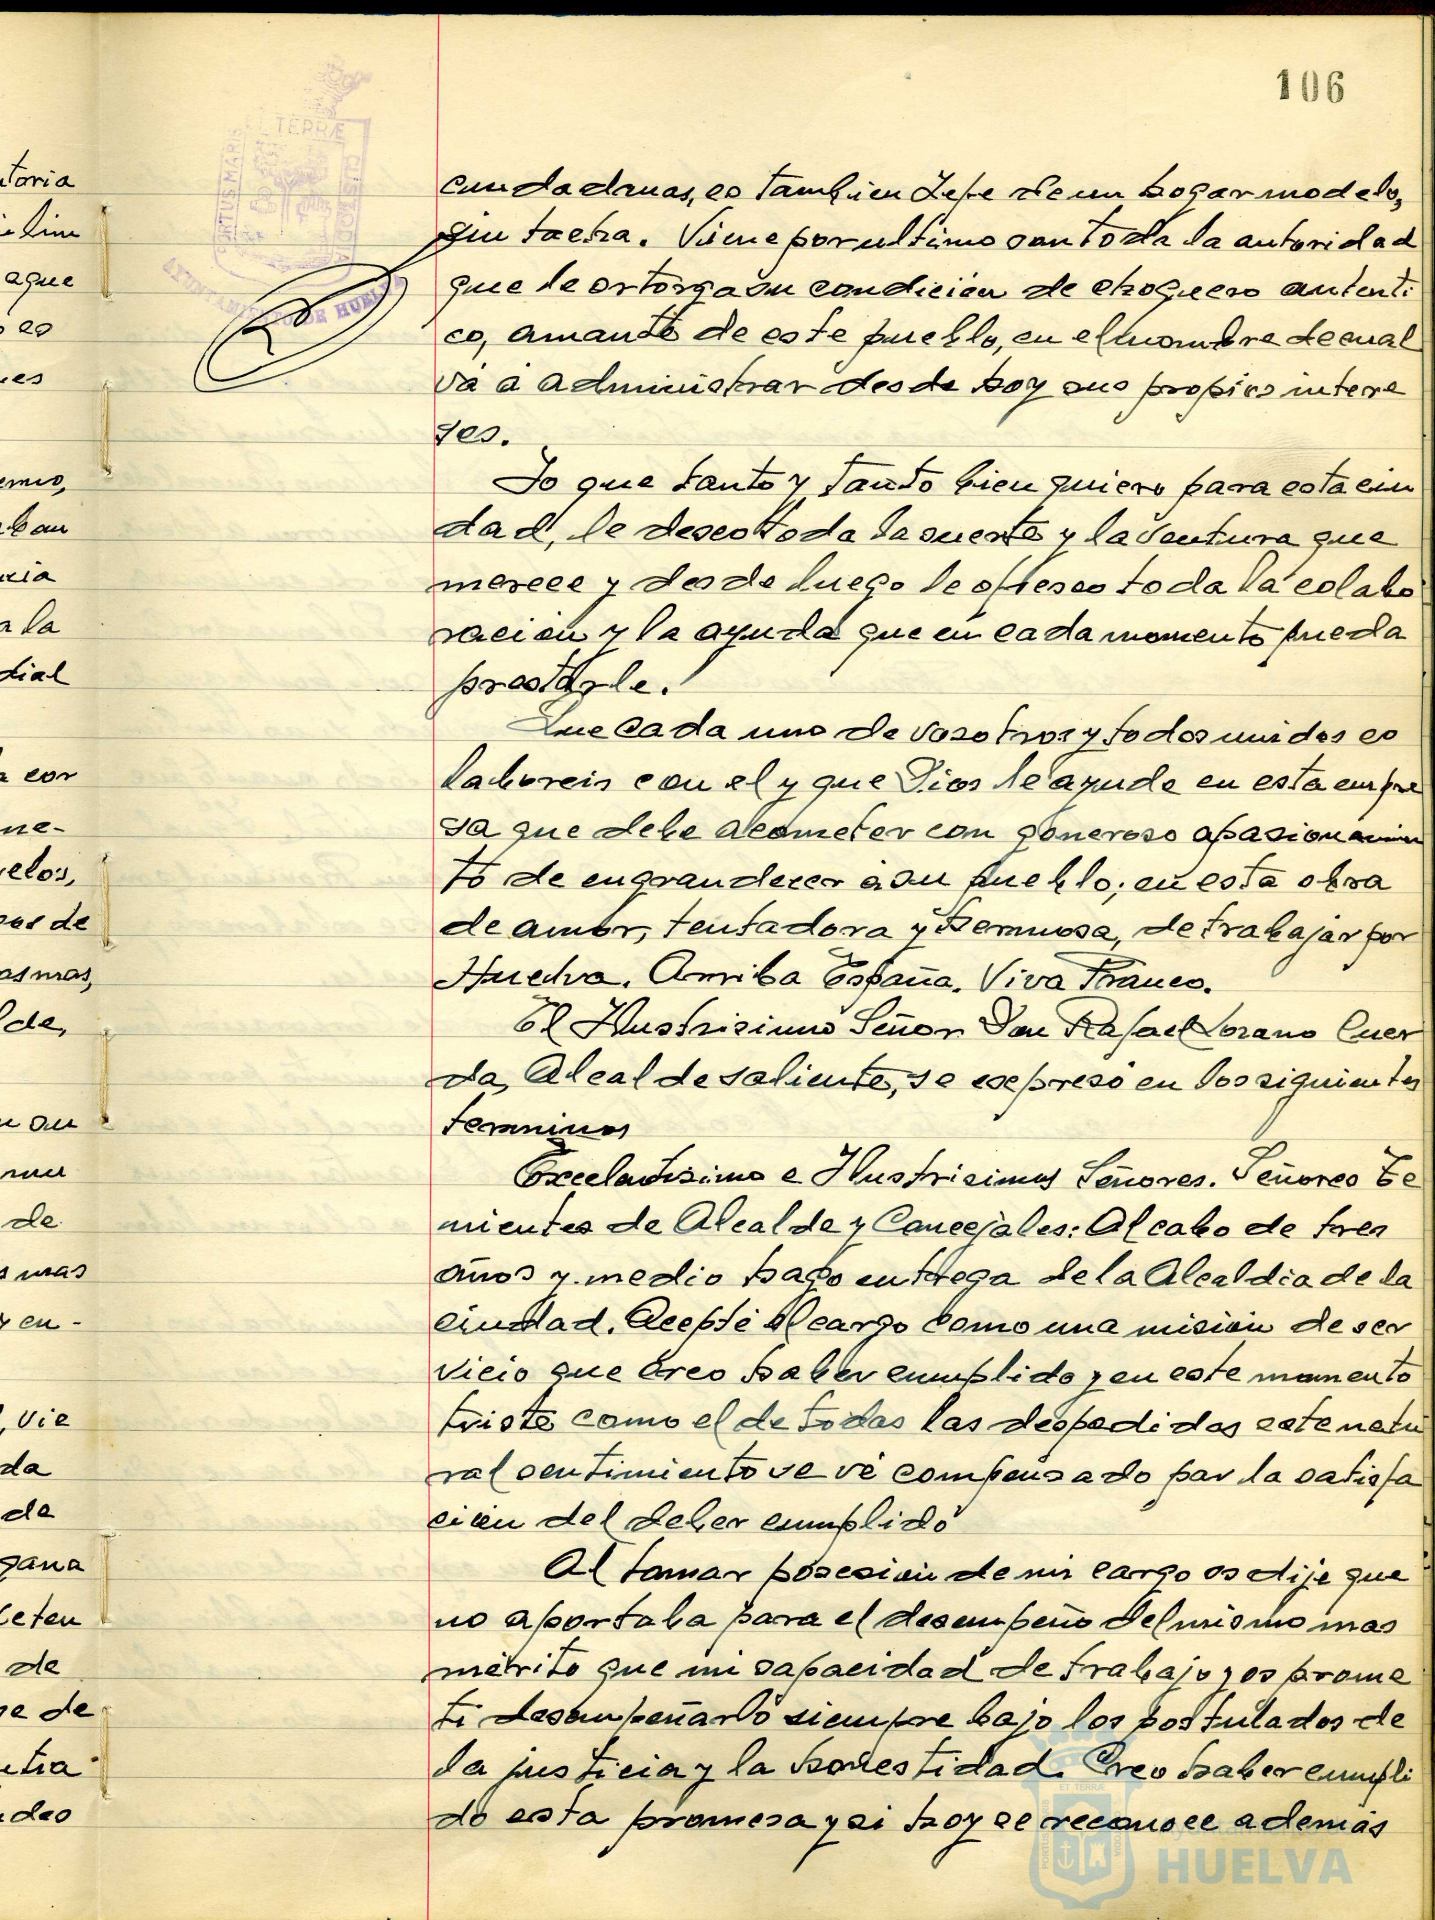 106
ciudadanas, es tambien Jefe de un hogar modelo,
sin tacha. Viene por ultimo con toda la autoridad
que le ortorga su condición de choquero autenti
co, amante de este pueblo, en el nombre de cual
vá a administrar desde hoy sus propios intere
ses.
Yo que tanto y tanto bien quiero para esta ciu
dad, le deseo toda la suerte y la ventura que
merece y desde luego le ofresco toda la colabo
racion y la ayuda que en cada momento pueda
prestarle.
Que cada uno de vosotros y todos unidos co
laboreis con el y que Dios le ayude en esta empre
sa que debe acometer con generoso apasionamien
to de engrandecer á su pueblo; en esta obra
de amor, tentadora y hermosa, de trabajar por
Huelva. Arriba España. Viva Franco.
El Ilustrisimo Señor Don Rafael Lozano Cuer
da, Alcalde saliente, se expresó en los siguientes
terminos
Excelentisimo e Ilustrisimos Señores. Señores Te
nientes de Alcalde y Concejales: Al cabo de tres
años y medio hago entrega de la Alcaldia de la
ciudad. Acepté el cargo como una misión de ser
vicio que creo haber cumplido y en este momento
triste como el de todas las despedidas este natu
ral sentimiento se vé compensado por la satisfa
ción del deber cumplido
Al tomar posesión de mi cargo os dije que
no aportaba para el desempeño del mismo mas
mérito que mi capacidad de trabajo y os prome
ti desempeñarlo siempre bajo los postulados de
la justicia y la honestidad. Creo haber cumpli
do esta promesa y si hoy se reconoce además
toria
aque
es
la
dial
cor
me-
velos,
de
mas,
de
mas
y en-
, vie
da
de
gana
de
de
PORTUS MARIS ET TERRÆ CUSTODIA
AYUNTAMIENTO DE HUELVA
HUELVA